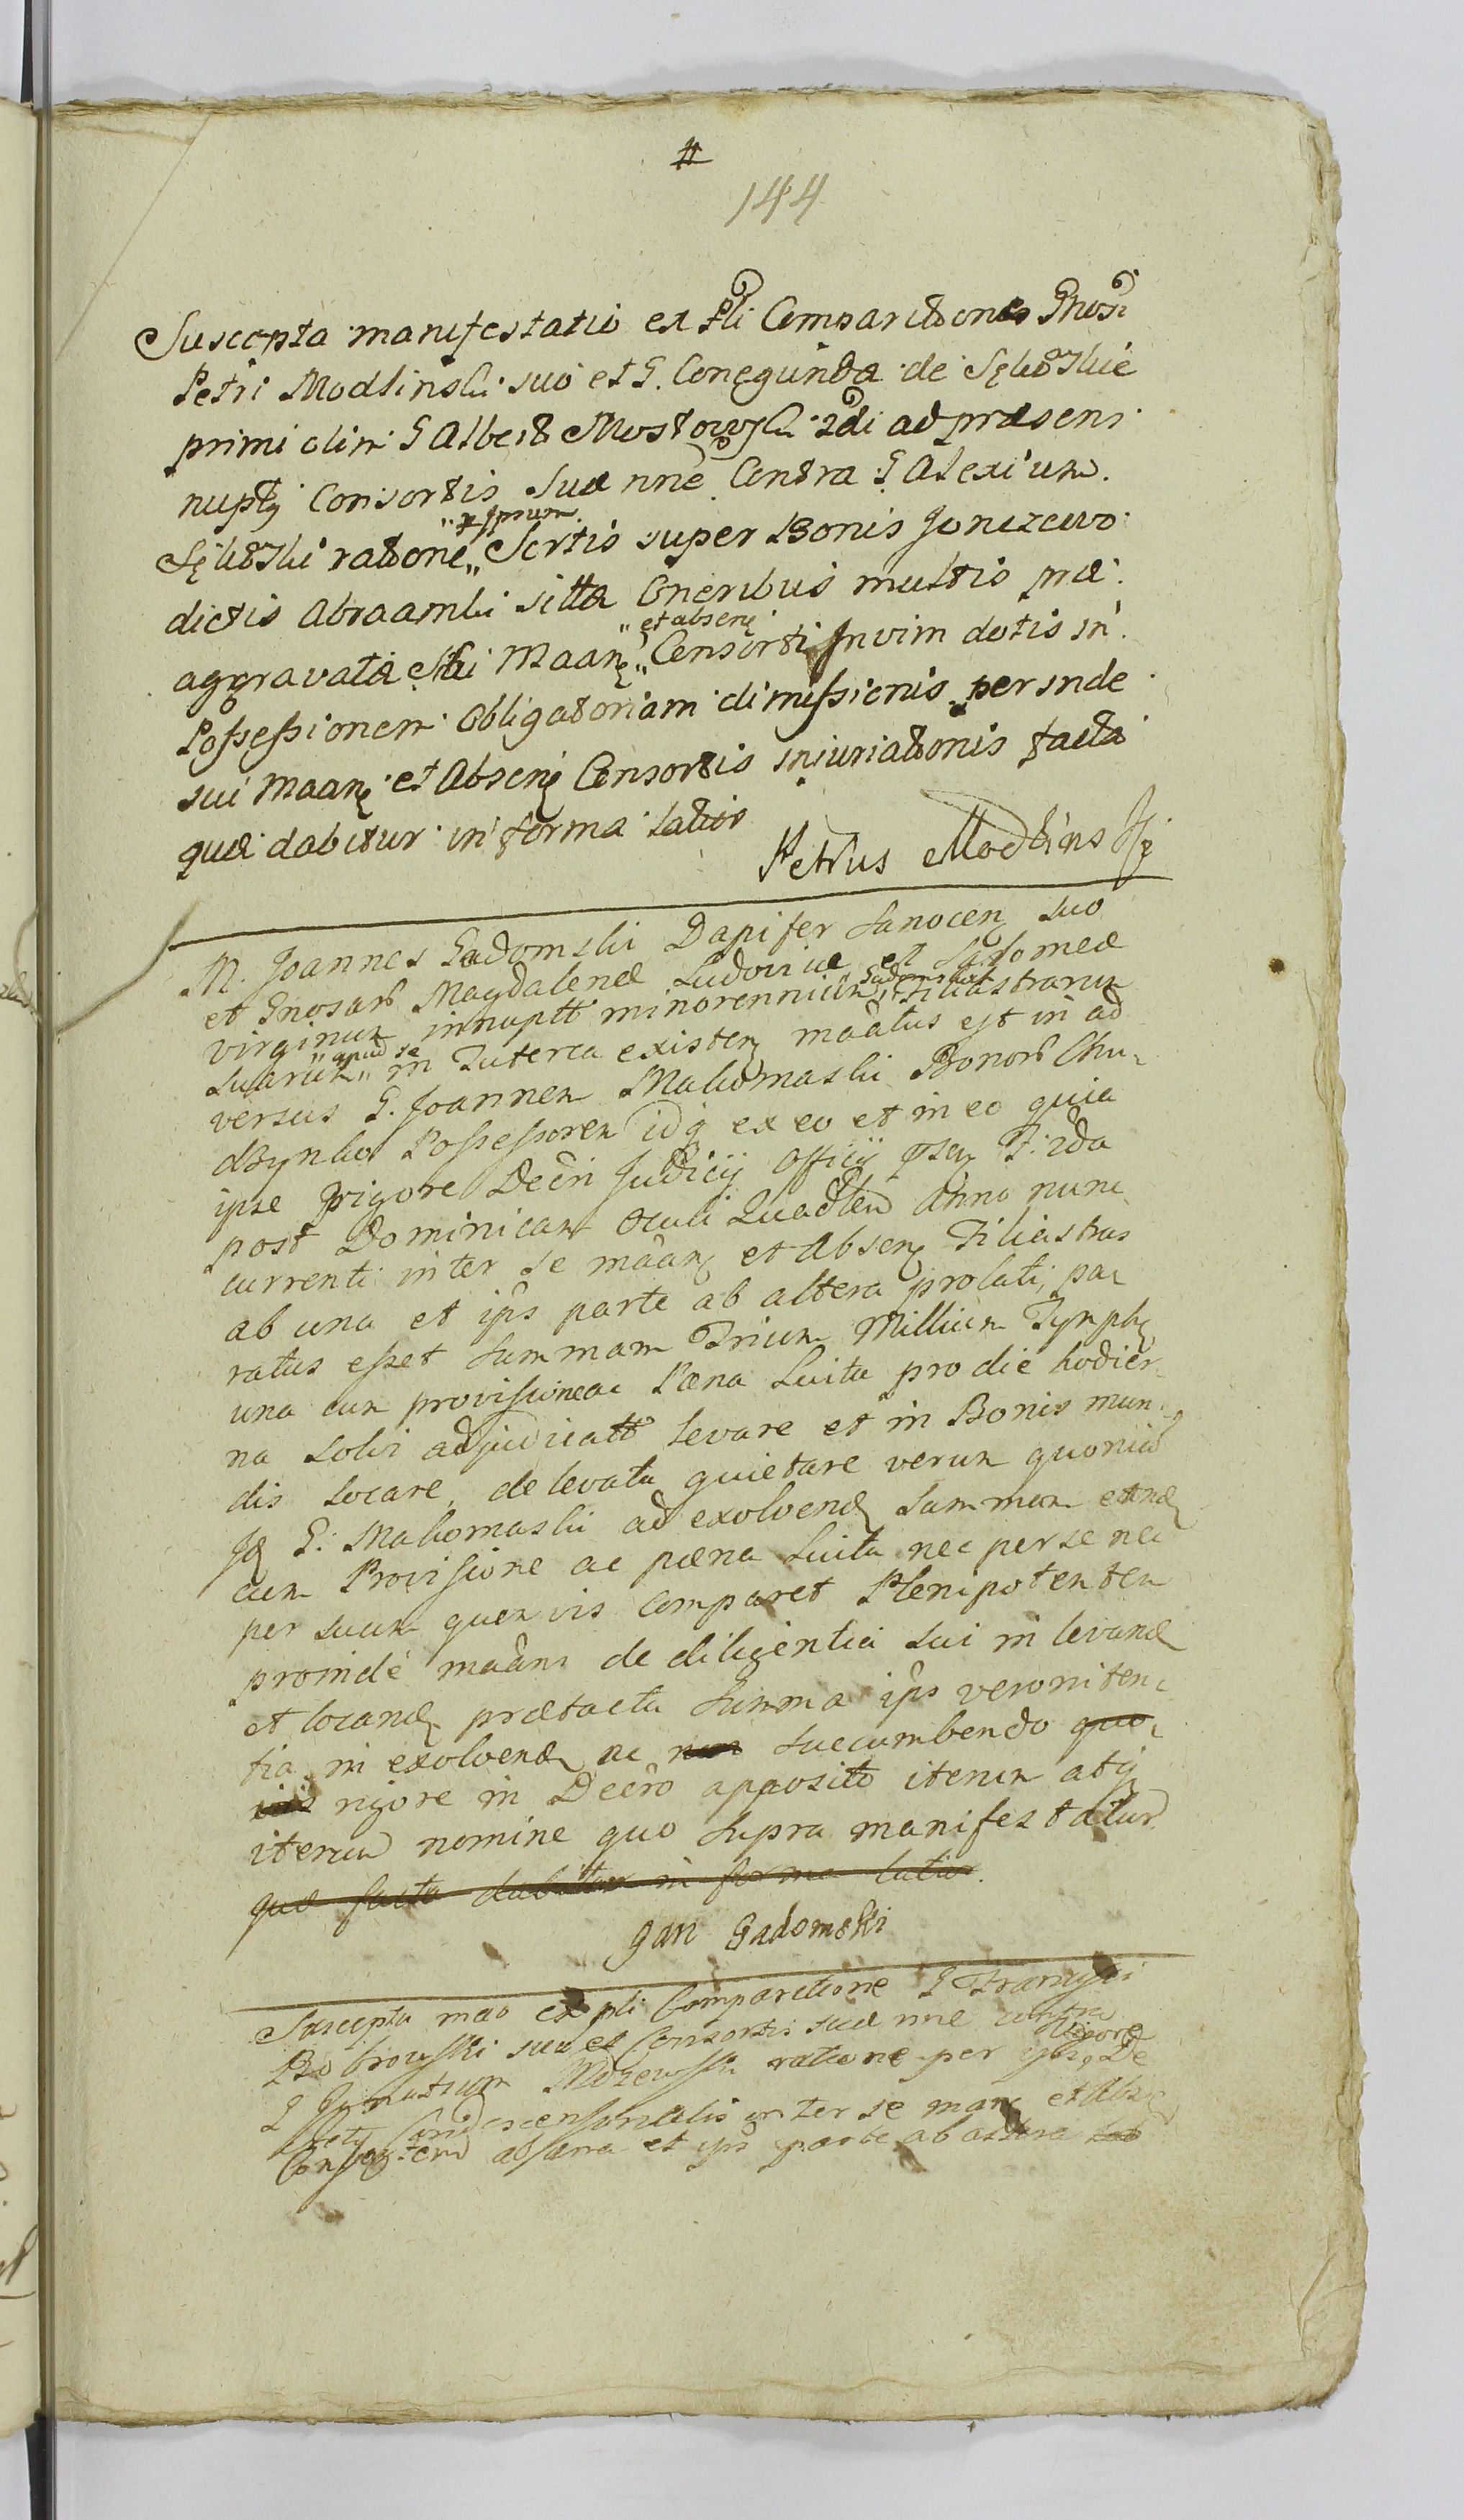 #
144
Suscepta manifestatio ex pli Comparitione Gnosi
Petri Modlinski suo et G. Conegunda de
primi olim G Alberti Mostowski 2di ad præsens
nuptӡ Consortis Suæ nne Contra G Alexium
ratione „ Sortis super Bonis Jonizewo
„ ipsum
dictis Abraamki sitta Oneribus multis præ
aggravata Maanӡ „ Consorti In vim dotis in
„ et absenӡ
Possessionem Obligatoriam dimissionis perinde
sui Maanӡ et Absenӡ Consortis injuriationis facta
quæ dabitur in forma latior
Petrus Modlinski
M. Joannes Gadomski Dapifer Sanocenӡ suo
et Gnosarъ Magdalenæ Ludovicæ et Salomeæ
virginum innuptt minorennium „ Filiastrarum
Gadomskie
suarum „ in Tuterea existenӡ maatus est in ad
„ apud se
versus G. Joannem Makomaski Bonorъ Chu-
dzynko Possessorem idqӡ ex eo et in eo quia
ipse rigore Decri Judicij Officij psenӡ F. 2da
post Dominicam Oculi Quadlem Anno nunc
currenti inter se maanӡ et Absenӡ Filiastras
ab una et ips parte ab altera prolati, pa-
ratus esset summam Trium Millium Tynphӡ
una cum provisione ac Pœna Luita pro die hodier-
na solvi adjudicatt levare et in Bonis mun-
dis locare, de levata quietare verum quoniam
Iӡ G. Makomaski ad exolvend summam eand
cum Provisione ac pœna Luita nec per se nec
per suum quemvis comparet Plenipotentem
proinde maans de diligentia sui in levand
et locand prætacta summa ips vero niten-
tia in exolvend ac succumbendo quo-
vis rigore in Decro apposito iterum atqӡ
iterum nomine quo supra manifestatur
quæ facta dabitur in forma latior.
Jan Gadomski
Suscepta mao ex pli Comparitione G Francisci
Bobrowski suo et Consortis suæ nne contra
G Ignatium ratione per ips Rigore De
creti Condescensorialis inter se manӡ et Absӡ
Consortem ab una et ips parte ab altera